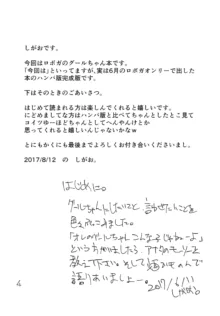 しがおです。
今回はロボガのグールちゃん本です。
「今回は」といってますが、実は6月のロボガオンリーで出した
本のハンパ版完成版です。
下はそのときのごあいさつ。
はじめて読まれる方は楽しんでくれると嬉しいです。
にとめましてな方はハンパ版と比べてちょっとしたとこ見て
コイツゆーほどちゃんとしてへんやんけとか
思ってくれると嬉しいんじゃないかなw
とにもかくにも最後までよろしくお付き会いくださいまし。
2017/8/12 の しがお。
はじめに。
グールちゃんにしたいこと 言わせたいことを
「オレのグールちゃんこんな子じゃねーよ」
教えて下さい。そして
語りあいましょー。
2017/6/11
しがお
4